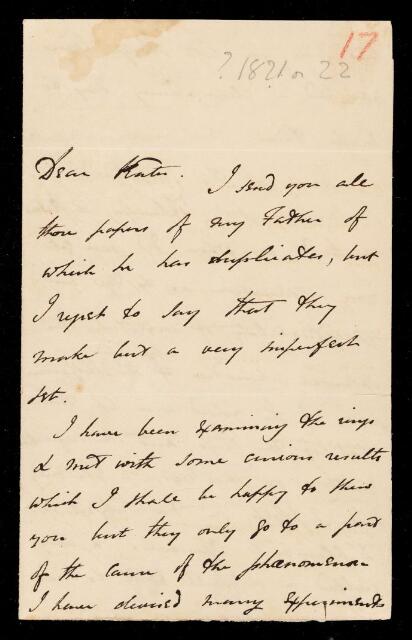 17
? 1821 or 22
Dear Kater. I send you all
those papers of my Father of
which he has duplicates, but
I regret to say that they
make but a very imperfect
set.
I have been examining the rings
& met with some curious results
which I shall be happy to shew
you but they only go to a part
of the cause of the phænomenon
I have devised many experiments